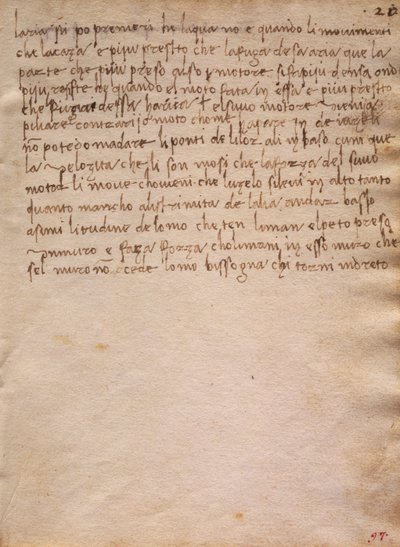 21
laria si po premeri he laqua no e quando li movimenti
che lacaza e piu presto che la fuga de sa aria que la
parte che piu preso also motore si fa piu densa ond
piu resiste de quando el moto fata in essa e piu presto
che dessa haria el suvo motore
pihare contrario moto chome apare in de
no potedo madare li ponti de li loz ali in baso cum que
la velozita che li son mosi che la forza del suvo
motor li move choveni che luzelo si levi in alto tanto
quanto mancho al istrimita de lalia andaz basso
a simi litudine de lomo che ten li man el peto preso
un muro e faza forza cho li mani in esso muro che
se l muro no cede lomo bissogna chi torni indreto
97.